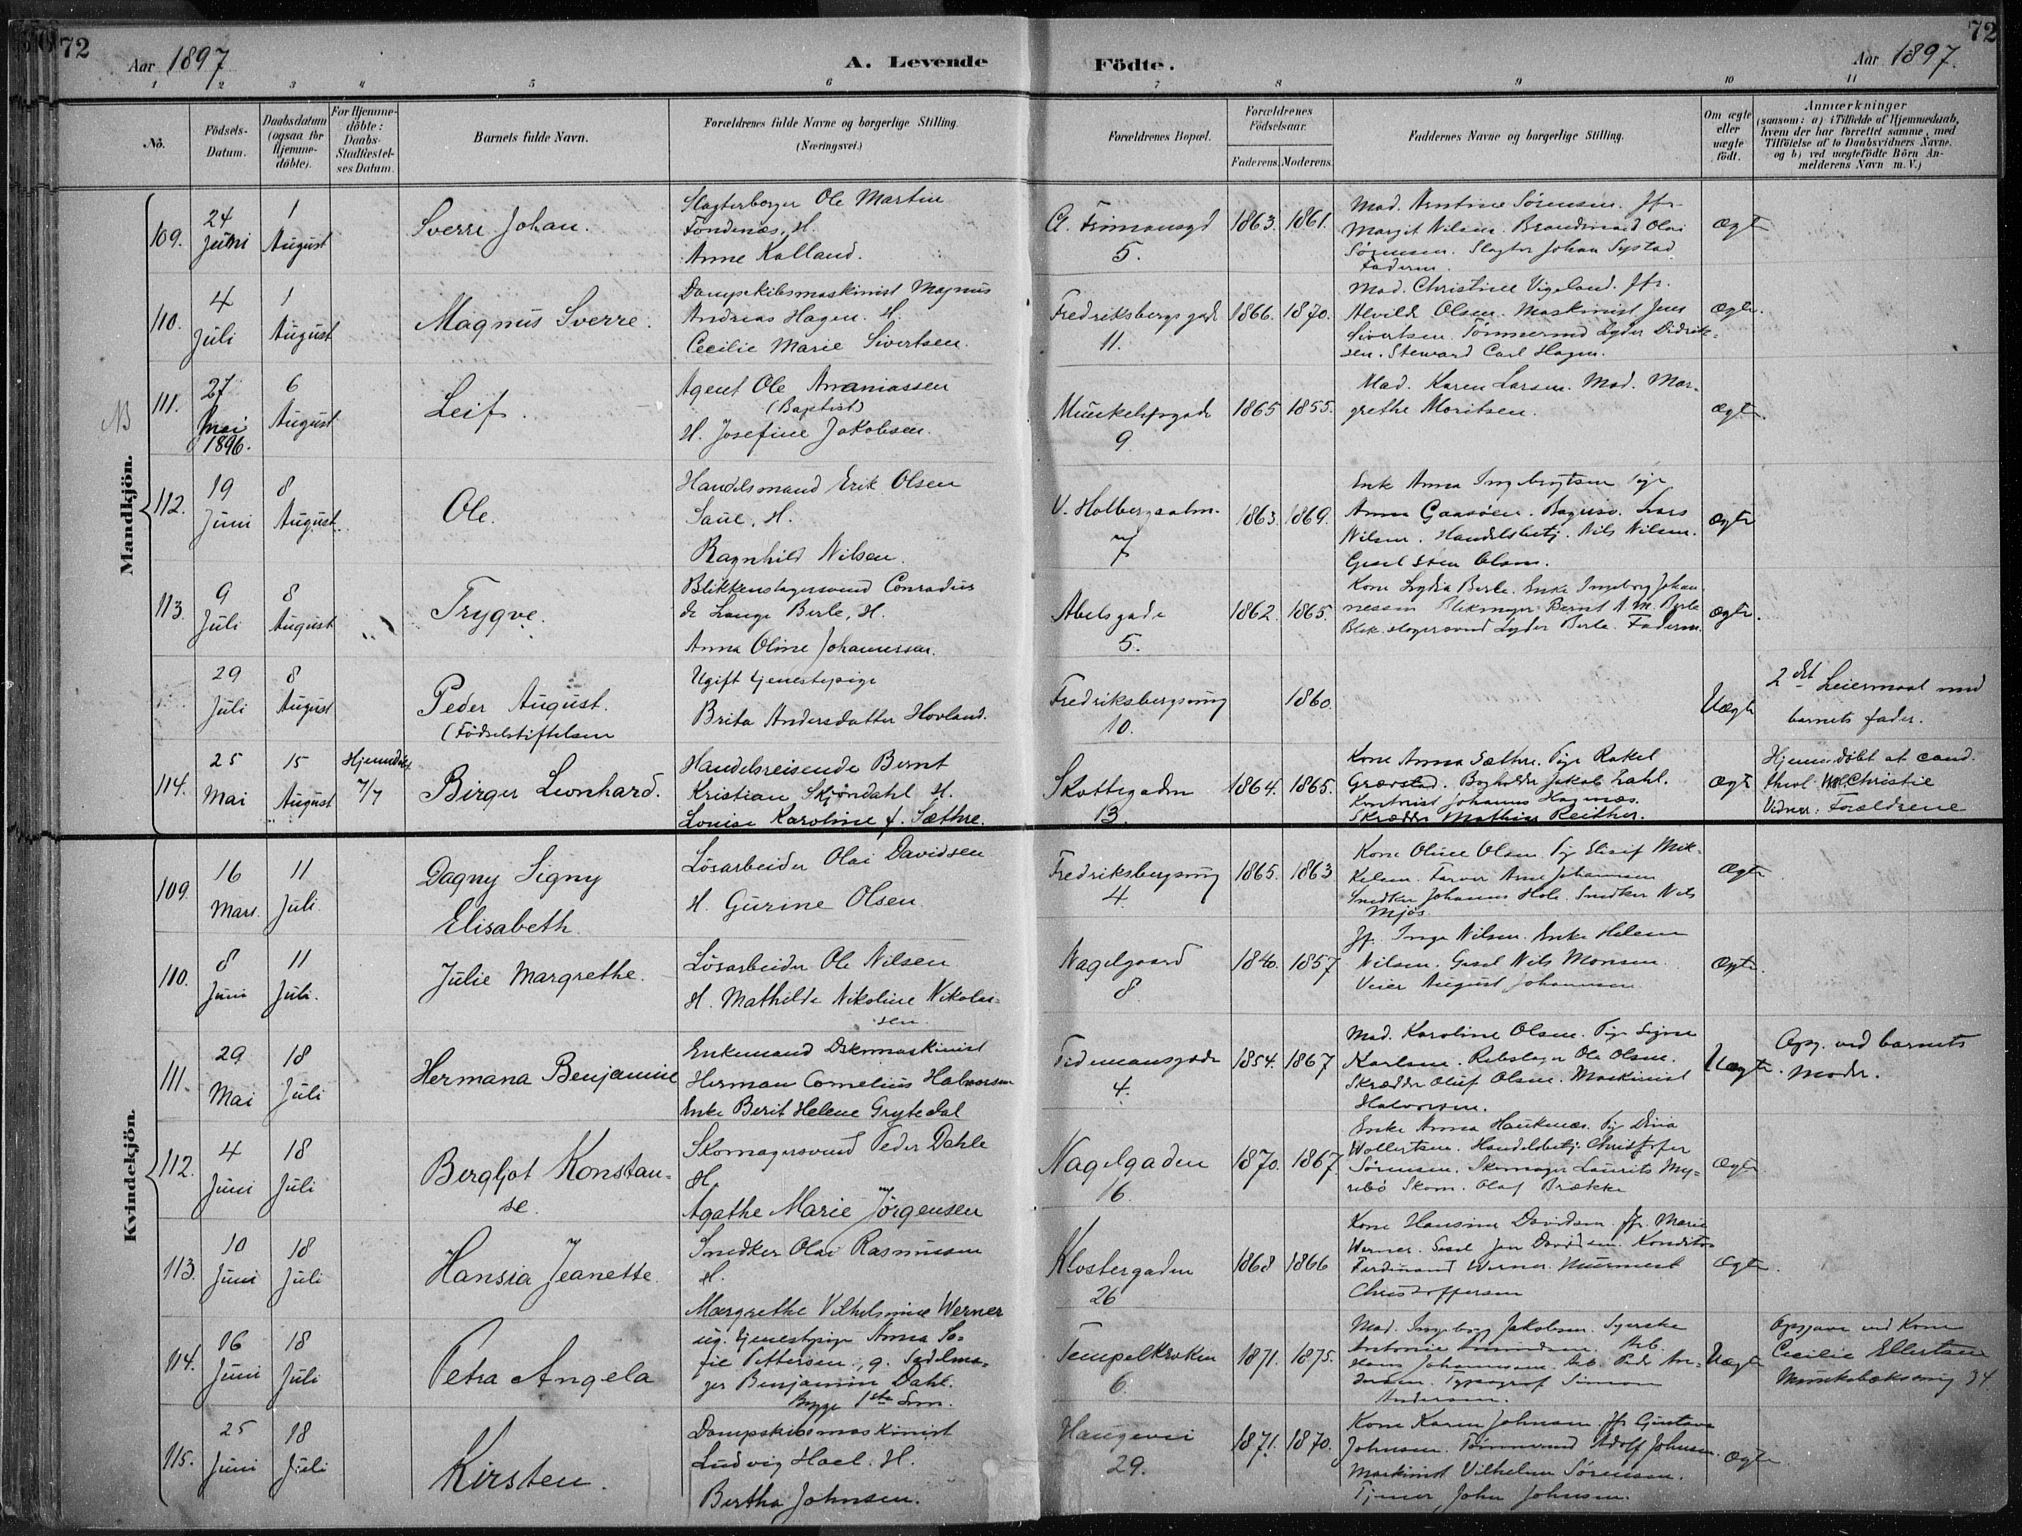 72
Aar 1897
A. Levende
Födte.
Aar 1897.
72
1 2 3 4 5 6 7 8 9 10 11
No.
Födsels-
Datum.
Daabsdatum
(ogsaa for
Hjemme-
döbte).
For Hjemme-
döbte:
Daabs-
Stadfæstel-
ses Datum.
Barnets fulde Navn.
Forældrenes fulde Navne og borgerlige Stilling.
(Næringsvei.)
Forældrenes Bopæl.
Forældrenes
Födselsaar.
Faderens. Moderens.
Faddernes Navne og borgerlige Stilling.
Om ægte
eller
uægte
födt.
Anmærkninger
(saasom: a) i Tilfælde af Hjemmedaab,
hvem der har forrettet samme, med
Tilföielse af to Daabsvidners Navne,
og b) ved uægtefödte Börn An-
melderens Navn m. V.)
Mandkjön.
109.
24
Juni
1
August
Sverre Johan.
Slagterborger Ole Martin
Fondenæs, H.
Anne Kalland.
5.
1863. 1861.
Mad. Arntine Sørensen. Jfr.
Margit Nilsen. Brandmand Olai
Sørensen. Slagter Johan Systad
Faderen.
Ægte
110.
4
Juli
1
August
Magnus Sverre.
Dampskibsmaskinist Magnus
Andreas Hagen. H.
Cecilie Marie Sivertsen.
Fredriksbergsgade
11.
1866. 1870.
Mad. Christine Vigeland. Jfr.
Alvilde Olsen. Maskinist Jens
Sivertsen. Tømmermd Lyder Didrik-
sen. Steward Carl Hagen.
Ægte.
111.
27
Mai
1896.
6
August
Leif.
Agent Ole Ananiassen
(Baptist)
H. Josefine Jakobsen.
9
1865 1855.
Mad. Karen Larsen. Mad. Mar-
grethe Moritsen.
Ægte.
112.
19
Juni
8
August
Ole.
Handelsmand Erik Olsen
Saue, H.
Ragnhild Nilsen.
V. Holbergsalm.
7
1863. 1869.
Enke Anna Ingebrigtsen Pige
Anna Gaasøen. Bagersv. Lars
Nilsen. Handelsbetj. Nils Nilsen.
Gesel Sten Olsen.
Ægte
113.
9
Juli
8
August
Trygve.
Blikkenslagersvend Conradus
de Lange Berle, H.
Anna Oline Johannessen.
Abelsgade
5.
1862. 1865.
Kone Lydia Berle. Enke Ingeborg Johan
nessen Bernt A. M. Berle
Blik.slagersvend Lyder Berle. Faderen.
Ægte.
29
Juli
8
August
Peder August.
(Fødselstiftelsen
Ugift tjenestepige
Brita Andersdatter Hovland.
Fredriksbergsvug
10.
1860.
Uægte
2det Leiermaal med
barnets fader.
114.
25
Mai
15
August
Hjemmedøbt
7/7
Birger Leonhard.
Handelsreisende Bernt
Kristian Skjöndahl H.
Louise Karoline f. Sæthre.
Skottegaden
13.
1864. 1865.
Kone Anna Sæthre. Pige Rakel
Grævstad. Bogholder Jakob Zahl.
Kontorist Johannes Hagenæs.
Skrædder Mathias Reither.
Ægte
Hjemmedøbt af cand.
theol. Christie
Vidner: Forældrene
Kvindekjön.
109.
16
Mars.
11
Juli.
Dagny Signy
Elisabeth.
Løsarbeider Olai Davidsen
H. Gurine Olsen.
Fredriksbergsvug
4
1865. 1863
Kone Oline Olsen. Pige Elisif Mik-
kelsen. Farver Arne Johannesen
Snedker Johannes Hole. Snedker Nils
Mjøs.
Ægte
110.
8
Juni
11
Juli.
Julie Margrethe.
Løsarbeider Ole Nilsen
H. Mathilde Nikoline Nikolai-
sen.
Nagelgaard
8
1840. 1857
Jfr. Inga Nilsen. Enke Helene
Nilsen. Gesel Nils Monsen.
Veier August Johannesen
Ægte.
111.
29
Mai
18
Juli
Hermana Benjamine
Enkemand Dskbsmaskinist
Herman Cornelius Halvorsen
Enke Berit Helene Grytedal
Tidemansgade
4.
1854. 1867
Mad. Karoline Olsen. Pige Signe
Karlsen. Rebslager Ole Olsen.
Skrædder Oluf Olsen. Maskinist
Halvorsen.
Uægte.
Opg. ved barnets
moder.
112.
4
Juni
18
Juli
Bergljot Konstan-
se.
Skomagersvend Peder Dahle
H.
Agathe Marie Jørgensen
Nagelgaden
16.
1870. 1867.
Enke Anna Haukenæs. Pige Dina
Wollertsen. Handelsbetj. Christofer
Sørensen. Skomager Laurits My-
rebø Skom. Olaf Brække
Ægte.
113.
10
Juni
18
Juli
Hansia Jeanette.
Snedker Olai Rasmussen
H.
Margrethe Vilhelmine Werner
Klostergaden
26
1868 1866
Kone Hansine Davidsen. Jfr. Marie
Werner. Gesel Jen Davidsen. Konditor
Ferdinand Werner. Murmest
Christoffersen
Ægte.
114.
16
Juni
18
Juli
Petra Angela
ug. tjenestepige Anna So-
fie Pettersen, g. Sadelma-
ger Benjamin Dahl.
Begge 1ste Lm.
Tempelkroken
6.
1871. 1875.
Mad. Ingeborg Jakobsen. Syerske
Antonie Amundsen. Arb.
Hans Johannesen. Arb. Peder An-
dersen. Typograf Simon
Andersen.
Uægte
Opgave ved Kone
Cecilie Ellertsen
Munkebæksvug 34
115.
25
Juni
18
Juli
Kirsten.
Dampskibsmaskinist
Ludvig Hoel. H.
Bertha Johnsen.
Haugevei
29.
1871. 1870.
Kone Karen Johnsen. Jfr Gustava
Johnsen. Tømmermd Adolf Johnsen.
Maskinist Vilhelm Sørensen.
Tjener John Johnsen.
Ægte.